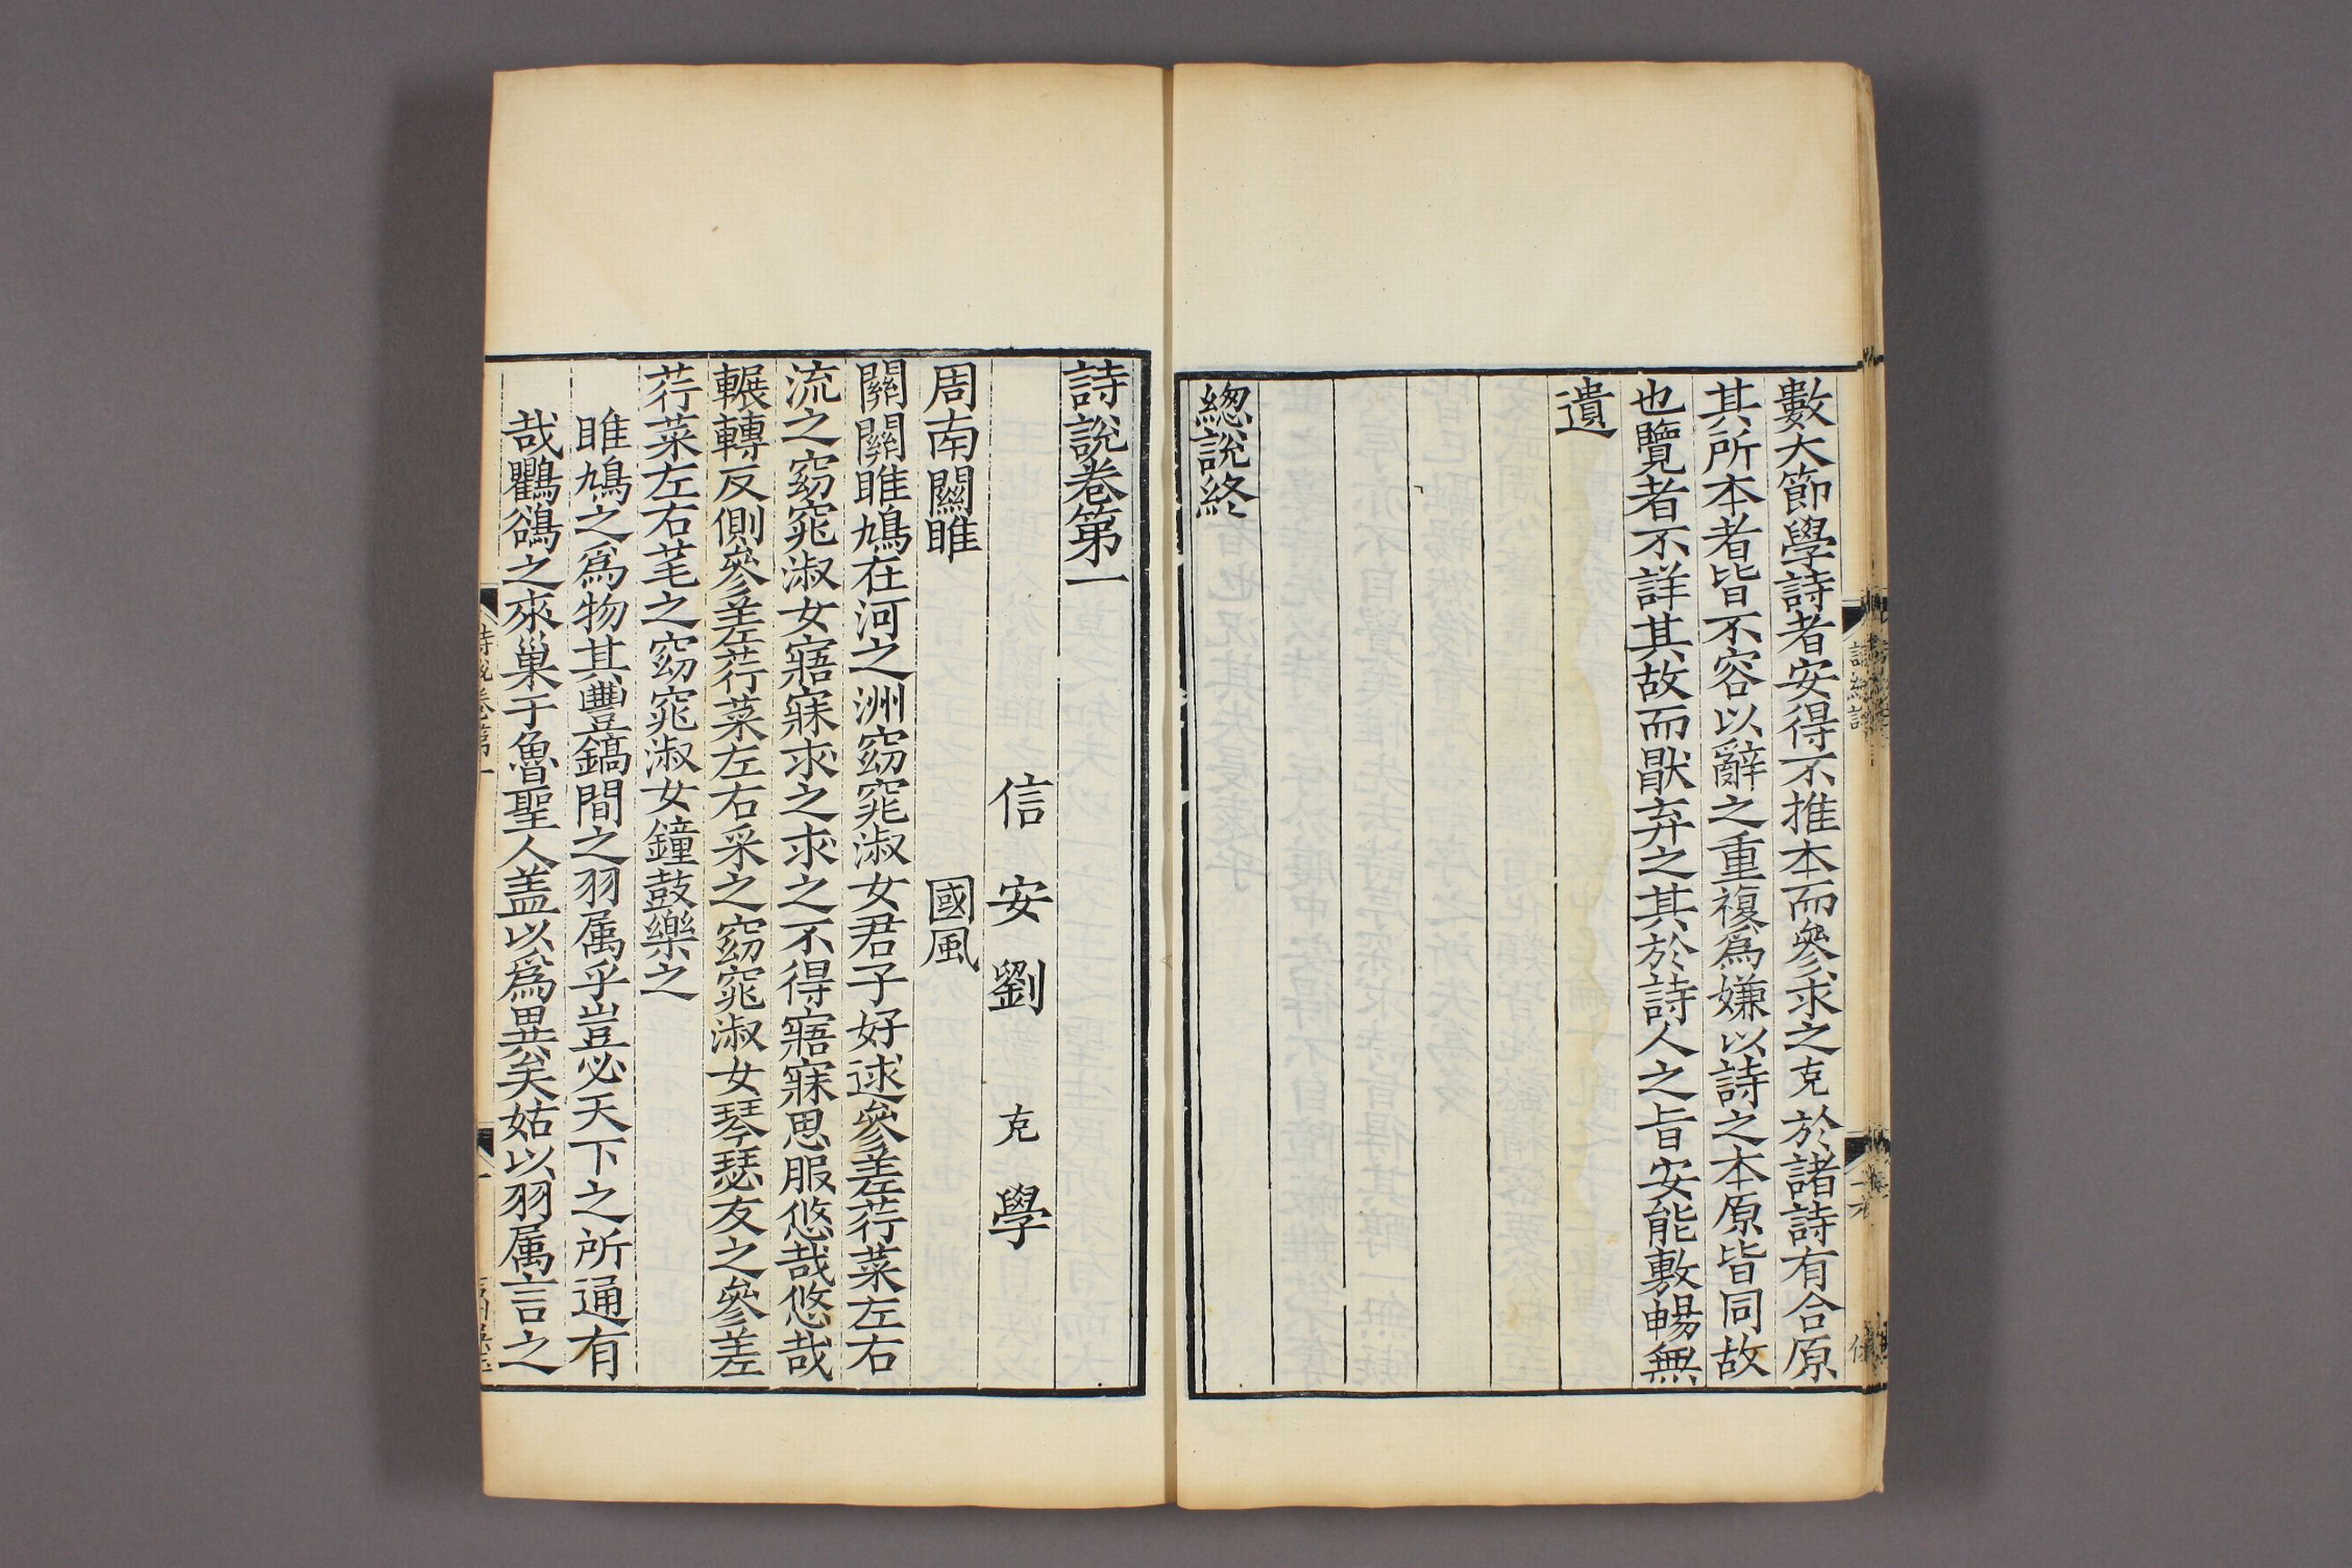 數大節學詩者安得不推本而參求之克於諸詩有合原
其所本者皆不容以辭之重複爲嫌以詩之本原皆同故
也覽者不詳其故而猒弃之其於詩人之旨安能敷暢無
遺
緫說終
詩說卷第一
信安劉克學
周南關雎 國風
關關雎鳩在河之洲窈窕淑女君子好逑參差荇菜左右
流之窈窕淑女寤寐求之求之不得寤寐思服悠哉悠哉
輾轉反側參差荇菜左右采之窈窕淑女琴瑟友之參差
荇菜左右芼之窈窕淑女鐘鼓樂之
雎鳩之爲物其豐鎬間之羽属乎豈必天下之所通有
哉鸜鵒之來巢于魯聖人盖以爲異矣姑以羽属言之
詩說卷第一
一